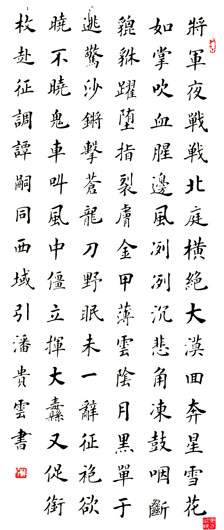 將軍夜戰戰北庭橫絕大漠回奔星雪花
如掌吹血腥邊風冽冽沉悲角凍鼓咽斷
貔貅躍墮指裂膚金甲薄雲陰月黑單于
逃驚沙鏘擊蒼龍刀野眠未一辭征袍欲
曉不曉鬼車叫風中僵立揮大纛又促銜
枚赴征調譚嗣同西域引潘貴雲書